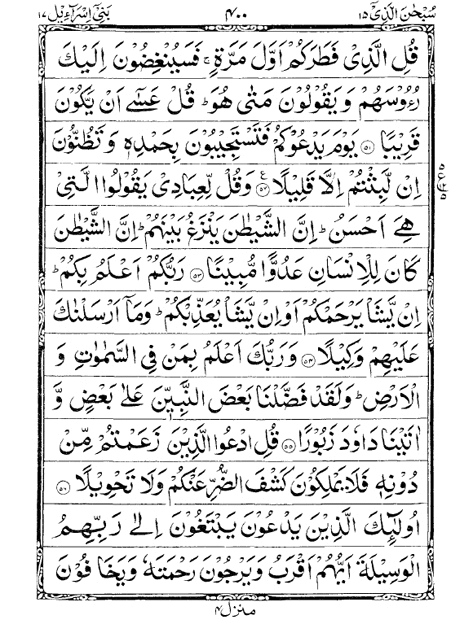 سُبْحٰنَ الَّذِیْۤ ۱۵ ۴۰۰ بَنِیْۤ اِسْرَآءِیْل ۱۷
قُلِ الَّذِیْ فَطَرَكُمْ اَوَّلَ مَرَّةٍ ۚ فَسَیُنْغِضُوْنَ اِلَیْكَ
رُءُوْسَهُمْ وَ یَقُوْلُوْنَ مَتٰی هُوَ ؕ قُلْ عَسٰۤی اَنْ یَّكُوْنَ
قَرِیْبًا ۵۱ یَوْمَ یَدْعُوْكُمْ فَتَسْتَجِیْبُوْنَ بِحَمْدِهٖ وَ تَظُنُّوْنَ
اِنْ لَّبِثْتُمْ اِلَّا قَلِیْلًا ۵۲ وَ قُلْ لِّعِبَادِیْ یَقُوْلُوا الَّتِیْ
هِیَ اَحْسَنُ ؕ اِنَّ الشَّیْطٰنَ یَنْزَغُ بَیْنَهُمْ ؕ اِنَّ الشَّیْطٰنَ
كَانَ لِلْاِنْسَانِ عَدُوًّا مُّبِیْنًا ۵۳ رَبُّكُمْ اَعْلَمُ بِكُمْ ؕ
اِنْ یَّشَاْ یَرْحَمْكُمْ اَوْ اِنْ یَّشَاْ یُعَذِّبْكُمْ ؕ وَ مَاۤ اَرْسَلْنٰكَ
عَلَیْهِمْ وَكِیْلًا ۵۴ وَ رَبُّكَ اَعْلَمُ بِمَنْ فِی السَّمٰوٰتِ وَ
الْاَرْضِ ؕ وَ لَقَدْ فَضَّلْنَا بَعْضَ النَّبِیّٖنَ عَلٰی بَعْضٍ وَّ
اٰتَیْنَا دَاوٗدَ زَبُوْرًا ۵۵ قُلِ ادْعُوا الَّذِیْنَ زَعَمْتُمْ مِّنْ
دُوْنِهٖ فَلَا یَمْلِكُوْنَ كَشْفَ الضُّرِّ عَنْكُمْ وَ لَا تَحْوِیْلًا ۵۶
اُولٰٓئِكَ الَّذِیْنَ یَدْعُوْنَ یَبْتَغُوْنَ اِلٰی رَبِّهِمُ
الْوَسِیْلَةَ اَیُّهُمْ اَقْرَبُ وَ یَرْجُوْنَ رَحْمَتَهٗ وَ یَخَافُوْنَ
منزل ۴